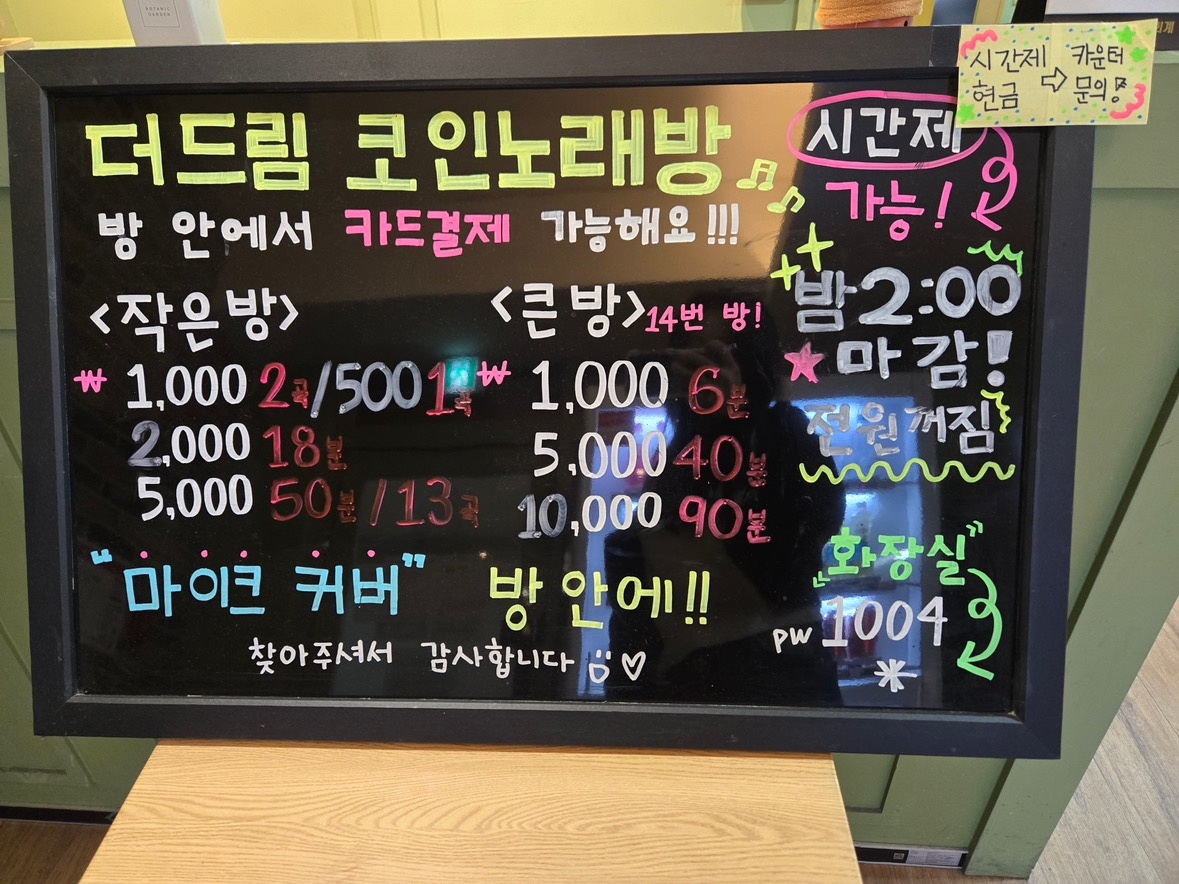 BOTANIC GARDEN
시간제 ⇨ 카운터
현금 문의!
더드림 코인노래방
방 안에서 카드결제 가능해요!!!
<작은방>
₩ 1,000 2곡/500 1곡
2,000 18분
5,000 50분/13곡
<큰방> 14번 방!
₩ 1,000 6분
5,000 40분
10,000 90분
"마이크 커버" 방 안에!!
찾아주셔서 감사합니다
시간제
가능!
밤2:00
마감!
전원꺼짐
"화장실"
pw 1004
*